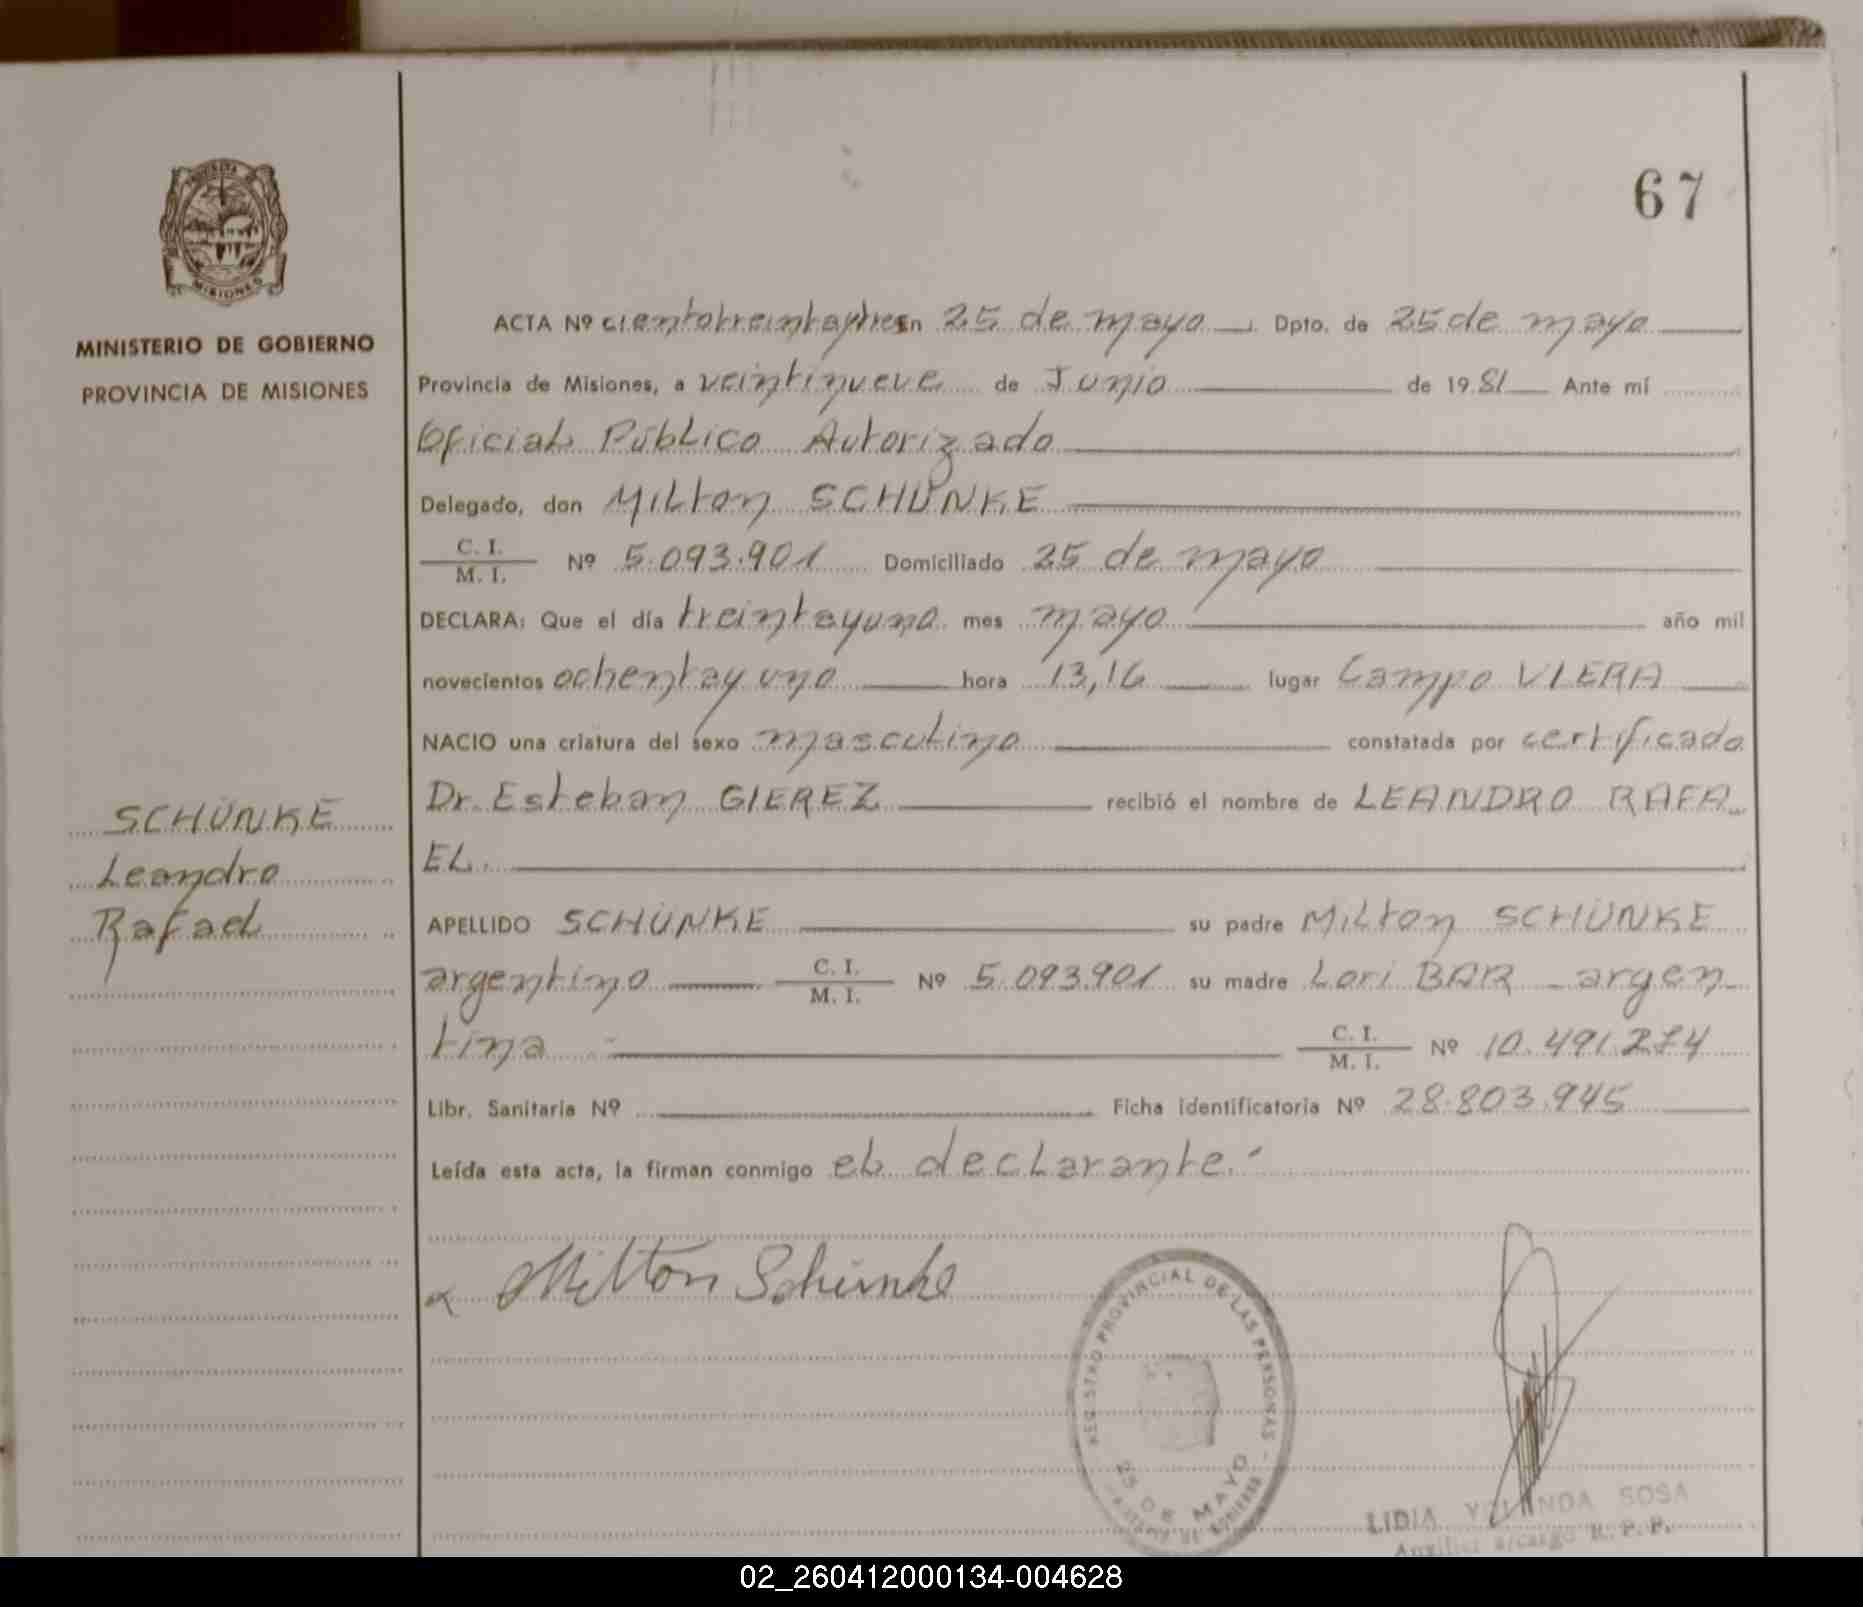 67
MINISTERIO DE GOBIERNO
PROVINCIA DE MISIONES
SCHÜNKE
Leandro
Rafael
ACTA Nº cientotreintaytres En 25 de mayo Dpto. de 25 de mayo
Provincia de Misiones, a veintinueve de Junio de 1981 Ante mí
Oficial Público Autorizado
Delegado, don Milton SCHÜNKE
C. I.
M. I. Nº 5.093.901 Domiciliado 25 de mayo
DECLARA: Que el día treintayuno mes mayo año mil
novecientos ochentayuno hora 13,16 lugar Campo VIERA
NACIO una criatura del sexo masculino constatada por certificado
Dr. Esteban GIEREZ recibió el nombre de LEANDRO RAFA
EL.
APELLIDO SCHÜNKE su padre Milton SCHÜNKE
argentino C. I.
M. I. Nº 5.093.901 su madre Lori BAR - argen-
tina - C. I.
M. I. Nº 10.491.274
Libr. Sanitaria Nº Ficha identificatoria Nº 28.803.945
Leída esta acta, la firman conmigo el declarante.-
Milton Schünke
REGISTRO PROVINCIAL DE LAS PERSONAS
25 DE MAYO
LIDIA YOLANDA SOSA
Auxiliar a/cargo R. P. P.
02_260412000134-004628